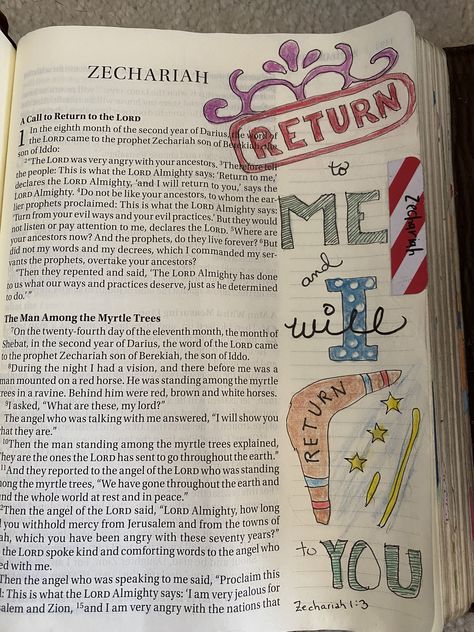 ZECHARIAH
A Call to Return to the LORD
1 In the eighth month of the second year of Darius, the word of
the LORD came to the prophet Zechariah son of Berekiah, the
son of Iddo:
2 "The LORD was very angry with your ancestors. 3 Therefore tell
the people: This is what the LORD Almighty says: 'Return to me,'
declares the LORD Almighty, 'and I will return to you,' says the
LORD Almighty. 4 Do not be like your ancestors, to whom the ear-
lier prophets proclaimed: This is what the LORD Almighty says:
'Turn from your evil ways and your evil practices.' But they would
not listen or pay attention to me, declares the LORD. 5 Where are
your ancestors now? And the prophets, do they live forever? 6 But
did not my words and my decrees, which I commanded my ser-
vants the prophets, overtake your ancestors?
"Then they repented and said, 'The LORD Almighty has done
to us what our ways and practices deserve, just as he determined
to do.'"
The Man Among the Myrtle Trees
7 On the twenty-fourth day of the eleventh month, the month of
Shebat, in the second year of Darius, the word of the LORD came
to the prophet Zechariah son of Berekiah, the son of Iddo.
8 During the night I had a vision, and there before me was a
man mounted on a red horse. He was standing among the myrtle
trees in a ravine. Behind him were red, brown and white horses.
9 I asked, "What are these, my lord?"
The angel who was talking with me answered, "I will show you
hat they are."
10 Then the man standing among the myrtle trees explained,
They are the ones the LORD has sent to go throughout the earth."
11 And they reported to the angel of the LORD who was standing
ong the myrtle trees, "We have gone throughout the earth and
nd the whole world at rest and in peace."
2 Then the angel of the LORD said, "LORD Almighty, how long
l you withhold mercy from Jerusalem and from the towns of
ah, which you have been angry with these seventy years?"
the LORD spoke kind and comforting words to the angel who
ed with me.
Then the angel who was speaking to me said, "Proclaim this
d: This is what the LORD Almighty says: 'I am very jealous for
salem and Zion, 15 and I am very angry with the nations that
RETURN
to
ME
Zechariah
and
I
will
RETURN
to YOU
Zechariah 1:3